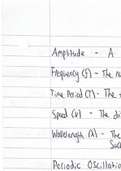 Amplitude - A
Frequency (f) - The nu
Time Period (T) - The t
Speed (v) - The di
Wavelength (λ) - The
Suc
Periodic Oscillatio